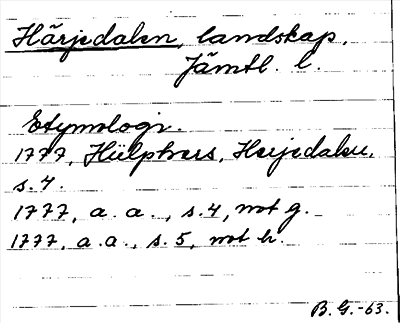 Härjedalen, landskap.
Jämtl. l.
Etymologi.
1777, Hülphers, Herjedalen,
s. 4.
1777, a. a., s. 4, not g.
1777, a. a., s. 5, not h.
B. G. -63.